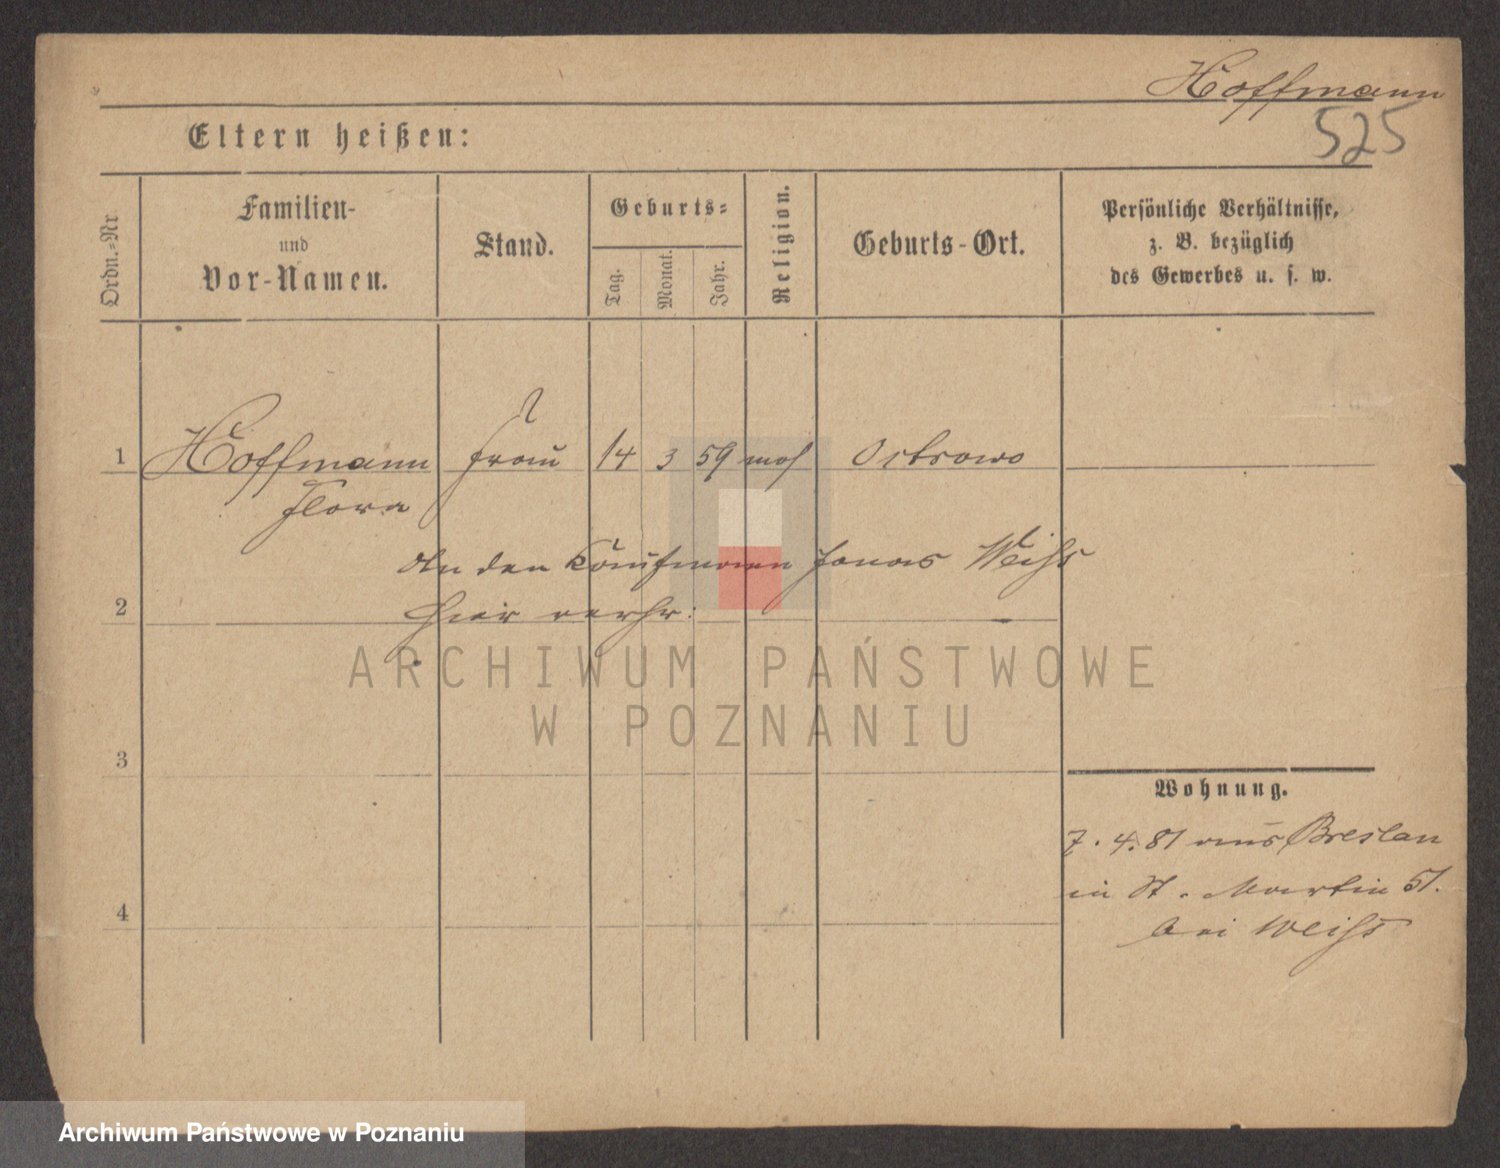 Hoffmann
525
Eltern heißen:
Ordn.=Nr
Familien-
und
Vor-Namen.
Stand.
Geburts=
Tag.
Monat.
Jahr.
Religion.
Geburts-Ort.
Persönliche Verhältnisse,
z. B. bezüglich
des Gewerbes u. s. w.
1 Hoffmann Frau 14 3 59 mos Ostrowo
Flora
An den Kaufmann Jonas Weiß
2 hier verh:
ARCHIWUM PAŃSTWOWE
W POZNANIU
3
Wohnung.
7. 4. 81 aus Breslau
in St. Martin 51.
4
bei Weiß
Archiwum Państwowe w Poznaniu